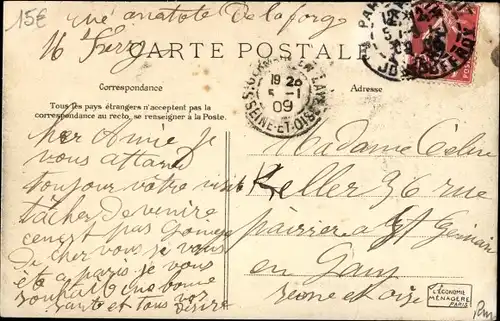 15€
rue anatole Delaforge
16
CARTE POSTALE
Correspondance
Adresse
Tous les pays étrangers n'acceptent pas la
correspondance au recto, se renseigner à la Poste.
ST GERMAIN-EN-LAYE
19 20
5 -1
09
SEINE-ET-OISE
PARIS
cher Amie je
vous attand
toujour vôtre visit
tâcher de venire
pas
de cher vous je vous
a paris je vous
souhait une bonne
santé et tous vos
désire
Madame
Keller 36 rue
a St Germain
en Lay
seine et oise
L'ÉCONOMIE
MÉNAGÈRE
PARIS